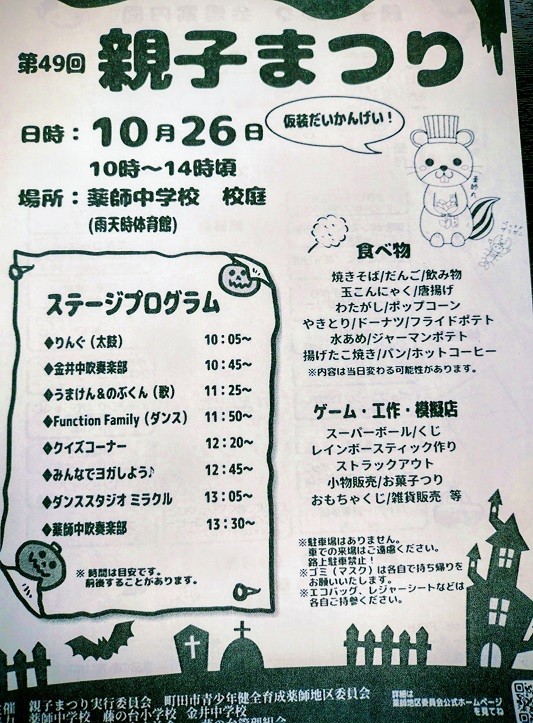 第49回 親子まつり
日時：10月26日
10時～14時頃
場所：薬師中学校 校庭
(雨天時体育館)
仮装だいかんげい！
ステージプログラム
◆りんぐ（太鼓） 10：05～
◆金井中吹奏楽部 10：45～
◆うまけん＆のぶくん（歌） 11：25～
◆Function Family（ダンス） 11：50～
◆クイズコーナー 12：20～
◆みんなでヨガしよう♪ 12：45～
◆ダンススタジオ ミラクル 13：05～
◆薬師中吹奏楽部 13：30～
※時間は目安です。
前後することがあります。
食べ物
焼きそば/だんご/飲み物
玉こんにゃく/唐揚げ
わたがし/ポップコーン
やきとり/ドーナツ/フライドポテト
水あめ/ジャーマンポテト
揚げたこ焼き/パン/ホットコーヒー
※内容は当日変わる可能性があります。
ゲーム・工作・模擬店
スーパーボール/くじ
レインボースティック作り
ストラックアウト
小物販売/お菓子つり
おもちゃくじ/雑貨販売 等
※駐車場はありません。
車での来場はご遠慮ください。
路上駐車禁止！
※ゴミ（マスク）は各自で持ち帰りを
お願いいたします。
※エコバッグ、レジャーシートなどは
各自ご持参ください。
主催 親子まつり実行委員会 町田市青少年健全育成薬師地区委員会
薬師中学校 藤の台小学校 金井中学校
詳細は
薬師地区委員会公式ホームページ
を見てね